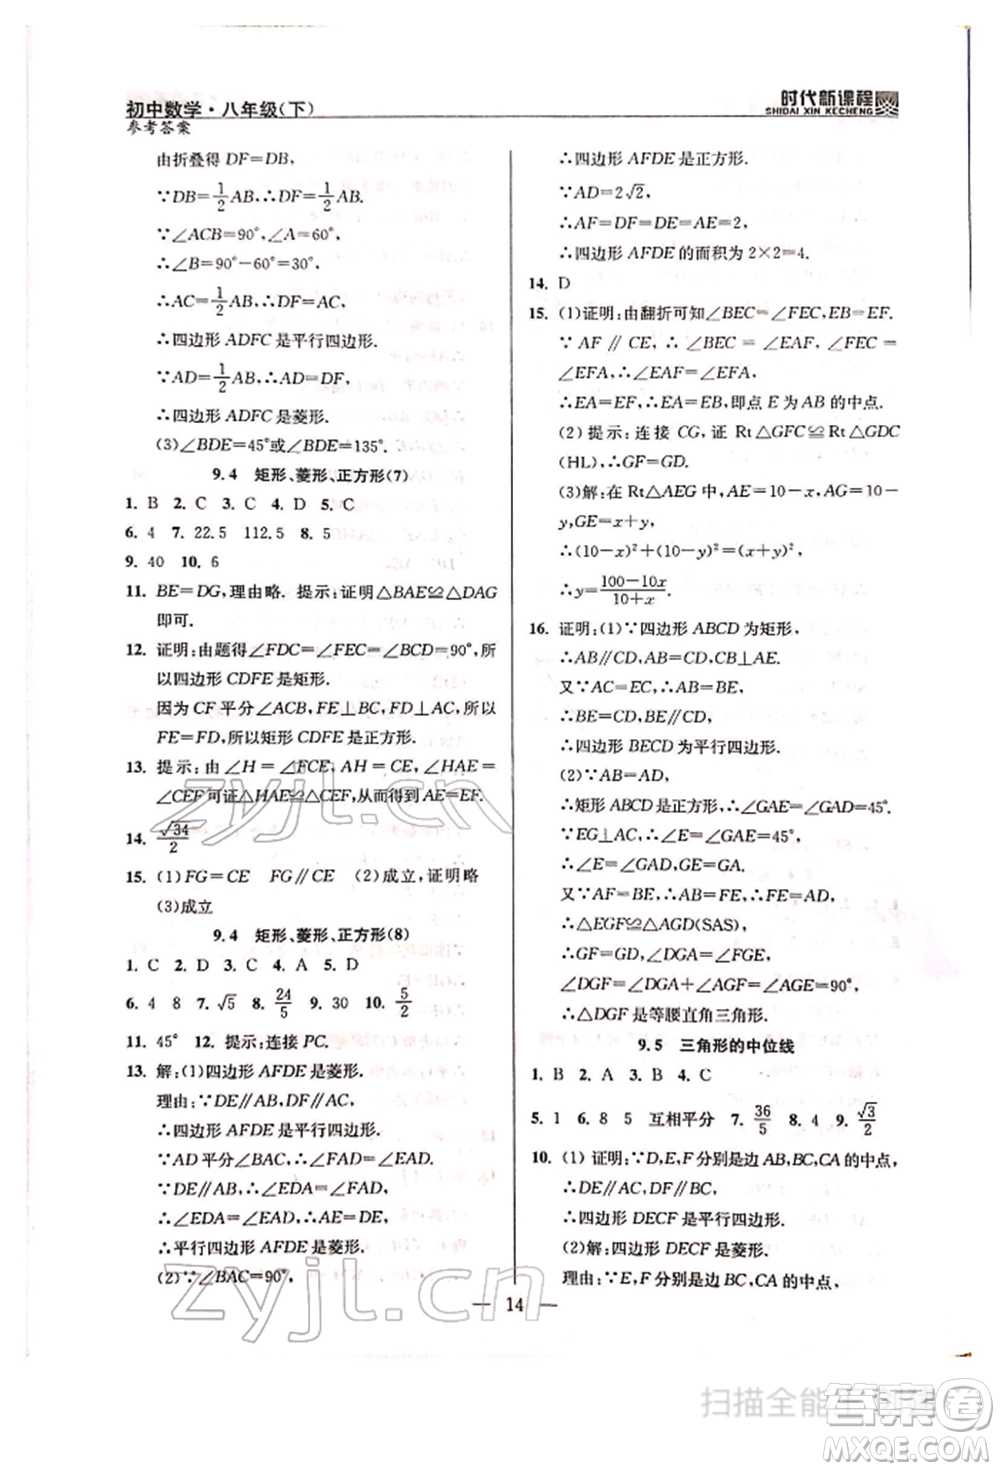 初中数学·八年级(下)
参考答案
时代新课程
SHIDAI XIN KECHENG
由折叠得 DF=DB,
∵DB=1/2AB,∴DF=1/2AB.
∵∠ACB=90°,∠A=60°,
∴∠B=90°-60°=30°,
∴AC=1/2AB,∴DF=AC,
∴四边形 ADFC 是平行四边形.
∵AD=1/2AB,∴AD=DF,
∴四边形 ADFC 是菱形.
(3)∠BDE=45°或∠BDE=135°.
9.4 矩形、菱形、正方形(7)
1. B 2. C 3. C 4. D 5. C
6. 4 7. 22.5 112.5 8. 5
9. 40 10. 6
11. BE=DG,理由略. 提示:证明△BAE≌△DAG
即可.
12. 证明:由题得∠FDC=∠FEC=∠BCD=90°,所
以四边形 CDFE 是矩形.
因为 CF 平分∠ACB,FE⊥BC,FD⊥AC,所以
FE=FD,所以矩形 CDFE 是正方形.
13. 提示:由∠H=∠FCE,AH=CE,∠HAE=
∠CEF可证△HAE≌△CEF,从而得到AE=EF.
14. √34/2
15. (1)FG=CE FG∥CE (2)成立,证明略
(3)成立
9.4 矩形、菱形、正方形(8)
1. C 2. D 3. C 4. A 5. D
6. 4 8 7. √5 8. 24/5 9. 30 10. 5/2
11. 45° 12. 提示:连接 PC.
13. 解:(1)四边形 AFDE 是菱形.
理由:∵DE∥AB,DF∥AC,
∴四边形 AFDE 是平行四边形.
∵AD 平分∠BAC,∴∠FAD=∠EAD.
∵DE∥AB,∴∠EDA=∠FAD,
∴∠EDA=∠EAD,∴AE=DE,
∴平行四边形 AFDE 是菱形.
(2)∵∠BAC=90°,
∴四边形 AFDE 是正方形.
∵AD=2√2,
∴AF=DF=DE=AE=2,
∴四边形 AFDE 的面积为 2×2=4.
14. D
15. (1)证明:由翻折可知∠BEC=∠FEC,EB=EF.
∵ AF ∥ CE,∴∠BEC = ∠EAF,∠FEC =
∠EFA,∴∠EAF=∠EFA,
∴EA=EF,∴EA=EB,即点 E 为 AB 的中点.
(2)提示:连接 CG,证 Rt△GFC≌Rt△GDC
(HL),∴GF=GD.
(3)解:在Rt△AEG 中,AE=10-x,AG=10-
y,EG=x+y,
∴(10-x)²+(10-y)²=(x+y)²,
∴y=(100-10x)/(10+x).
16. 证明:(1)∵四边形 ABCD 为矩形,
∴AB∥CD,AB=CD,CB⊥AE.
又∵AC=EC,∴AB=BE,
∴BE=CD,BE∥CD,
∴四边形 BECD 为平行四边形.
(2)∵AB=AD,
∴矩形 ABCD 是正方形,∴∠GAE=∠GAD=45°.
∵EG⊥AC,∴∠E=∠GAE=45°,
∴∠E=∠GAD,GE=GA.
又∵AF=BE,∴AB=FE,∴FE=AD,
∴△EGF≌△AGD(SAS),
∴GF=GD,∠DGA=∠FGE,
∴∠DGF=∠DGA+∠AGF=∠EGF+∠AGF=
∠AGE=90°,
∴△DGF 是等腰直角三角形.
9.5 三角形的中位线
1. B 2. A 3. B 4. C
5. 1 6. 8 5 互相平分 7. 36/5 8. 4 9. √3/2
10. (1) 证明:∵D,E,F 分别是边AB,BC,CA的中点,
∴DE∥CF,DF∥CE,
∴四边形 DECF 是平行四边形.
(2)解:四边形 DECF 是菱形.
理由:∵E,F 分别是边 BC,CA 的中点,
— 14 —
zyjl.cn
zyjl.cn
答案卷
MXQE.COM